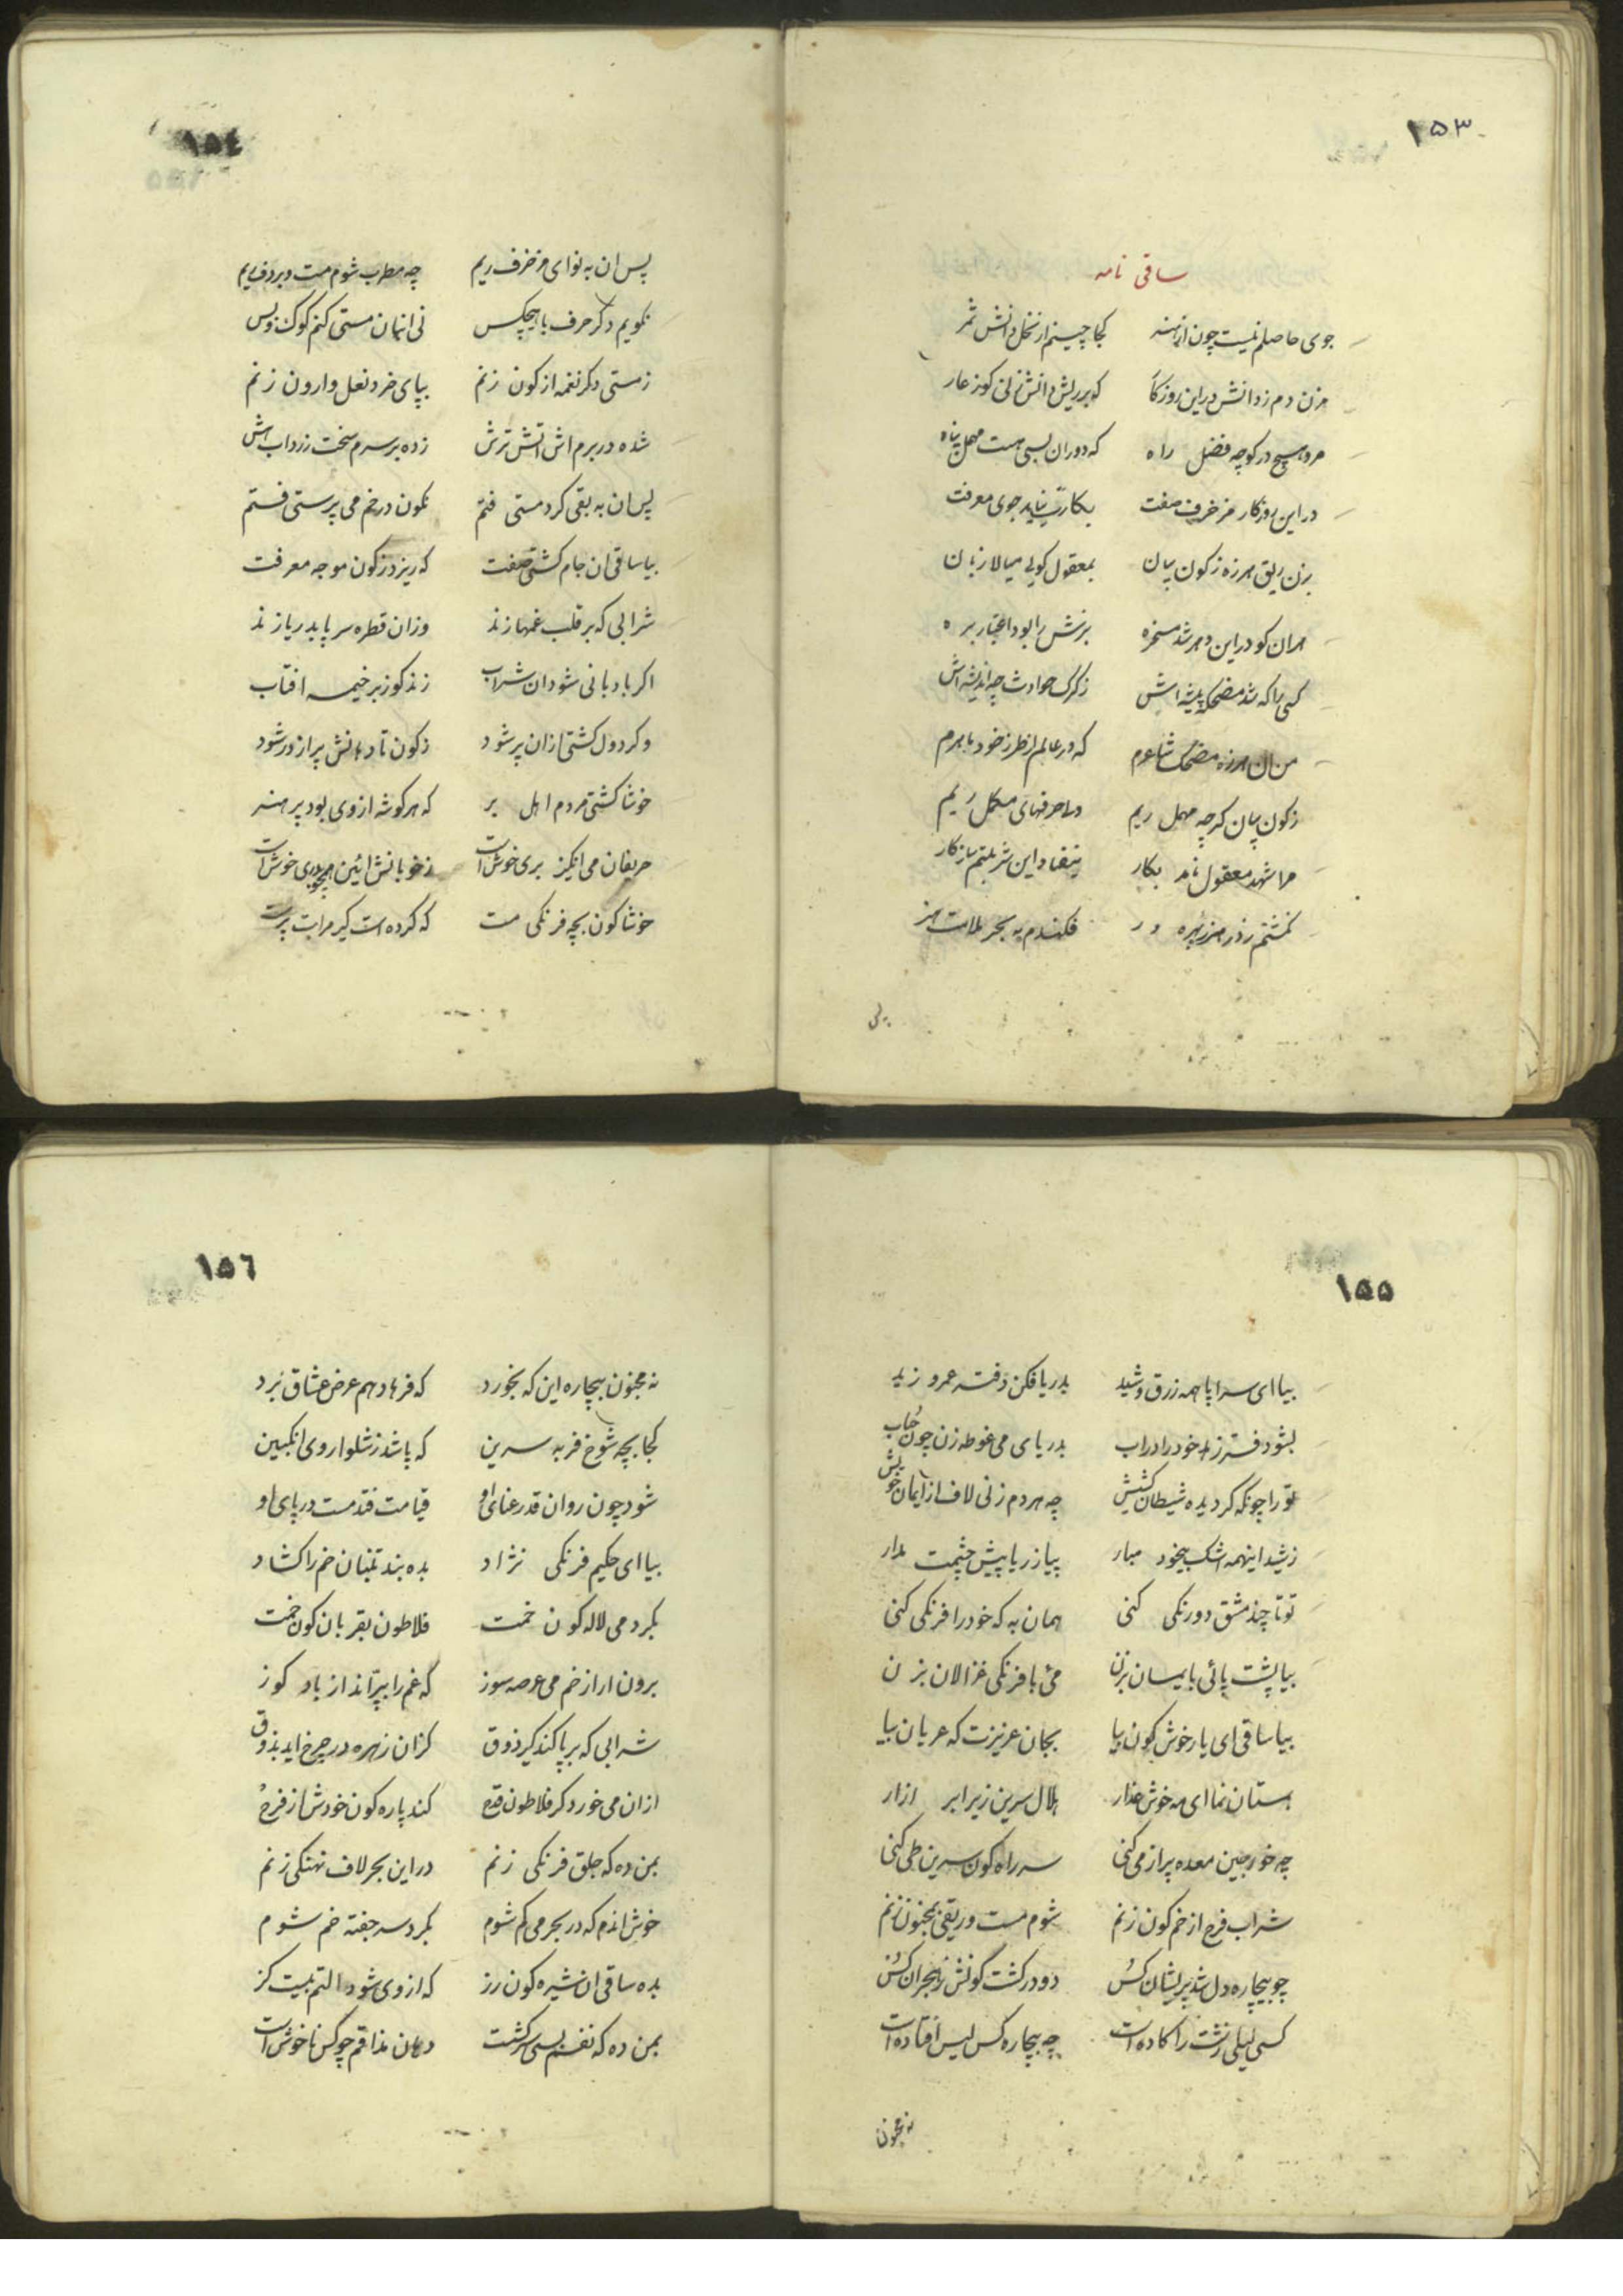 ۱۵۳
ساقی نامه
جوی حاصلم نیست چون از هنر کجا چینم از نخل دانش ثمر
مزن دم ز دانش در این روزگار که بر ریش دانش زنی کوز عار
مرو هیچ در کوچه فضل راه که دوران بسی هست مهمل پناه
در این روزکار مزخرف صفت بکارت نیاید جوی معرفت
بزن ریق هرزه ز کون بیان بمعقول کویی میالا زبان
هران کو در این دهر شد مسخره بزنش را بود اعتبار بره
کسی را که شد مضحکه پیشه اش ز کرک حوادث چه اندیشه اش
من ان هرزه مضحک شاعرم که در عالم از طرز خود ماهرم
ز کون بیان کرچه مهمل ریم حرفهای مکمل ریم
مرا شهد معقول نامد بکار نیفتاد این شربتم سازکار
نکشتم ز هنر بهره ور فکندم به بحر ملامت هنر
پس
۱۵٤
پس ان به نوای مزخرف ریم چه مطرب شوم مست و بر دف ریم
نکویم دکر حرف با هیچکس نی انبان مستی کنم کوک و بس
ز مستی دکر نغمه از کون زنم بپای خرد نعل وارون زنم
شده در برم اش اتش ترش زده بر سرم سخت زرداب اش
پس ان به بقی کرد مستی فتم نکون در خم می پرستی فتم
بیا ساقی ان جام کشتی صفت که ریزد ز کون موجه معرفت
شرابی که بر قلب غمها زند وزان قطره سر پا بدریا زند
اکر بادبانی شود ان شراب زند کوز بر خیمه افتاب
وکر دول کشتی ازان پر شود ز کون تا دهانش پر از در شود
خوشا کشتی مردم اهل بر که هر کوشه از وی بود پر هنر
حریفان می انکیز بری خوش است ز خوبانش ائین خوش است
خوشا کون بچه فرنکی مست که کرده است کیر مرا بت پرست
۱۵۵
بیا ای سراپا همه زرق و شید بدریا فکن دفتر عمرو زید
بشو دفتر زهد خود را در اب بدریای می غوطه زن چون حباب
تو را چونکه کردیده شیطان کشیش چه هر دم زنی لاف از ایمان خویش
ز شید اینهمه اشک بیخود مبار پیاز ریا پیش چشمت مدار
تو تا چند مشق دورنکی کنی همان به که خود را فرنکی کنی
بیا پشت پائی بایمان بزن می با فرنکی غزالان بزن
بیا ساقی ای یار خوش کون بیا بجان عزیزت که عریان بیا
بمستان نما ای مه خوش عذار هلال سرین زیر ابر ازار
چه خورجین معده پر از می کنی سر راه کون سرین طی کنی
شراب فرح از خم کون زنم شوم مست و ریقی بمجنون زنم
چو بیچاره دل شد پریشان کس دو در کشت کونش ز هجران کس
کسی لیلی زشت را کاده است چه بیچاره کس لیس افتاده است
نه مجنون
۱۵٦
نه مجنون بیچاره این که بخورد که فرهاد هم عرض عشاق برد
کجا بچه شوخ فربه سرین که پاشد ز شلوار وی انکبین
شود چون روان قد رعنای او قیامت فتد مست در پای او
بیا ای حکیم فرنکی نژاد بده بند تنبان خم را کشاد
بکرد می لاله کون خمت فلاطون بقربان کون خمت
برون ار از خم می عرصه سوز که غم را بپراند از باد کوز
شرابی که بر پا کند کیر ذوق کزان زهره در چرخ اید بذوق
ازان می خورد کر فلاطون قدح کند پاره کون خودش از فرح
بمن ده که جلق فرنکی زنم در این بحر لاف نهنکی زنم
خوش اندم که در بحر می کم شوم بکرد سر جفته خم شوم
بده ساقی ان شیره کون رز که از وی شود التم بیست کز
بمن ده که نفسم بسی سرکشت دهان مذاقم چو کس ناخوش است